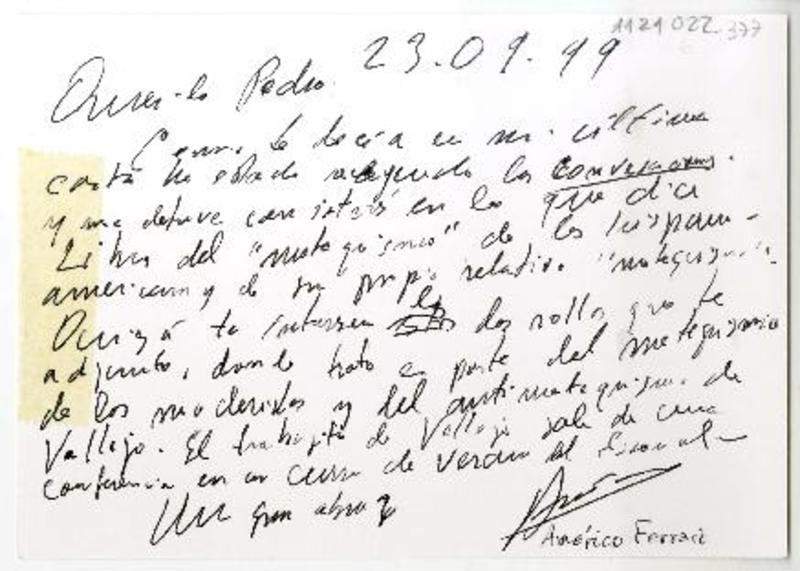 1124 022 377
23.09.99
Querido Pedro:
Como te decía en mi última
carta he estado releyendo las conversaciones.
y me detuve con interés en lo que dice
del "metequismo" de los hispano-
americanos y de su propio relativo "metequismo".
Quizá te interesen los dos rollos que te
adjunto, donde trato en parte del metequismo
de los modernistas y del antimetequismo de
Vallejo. El trabajito de Vallejo sale de una
conferencia en un curso de verano
Un gran abrazo
Américo Ferrari